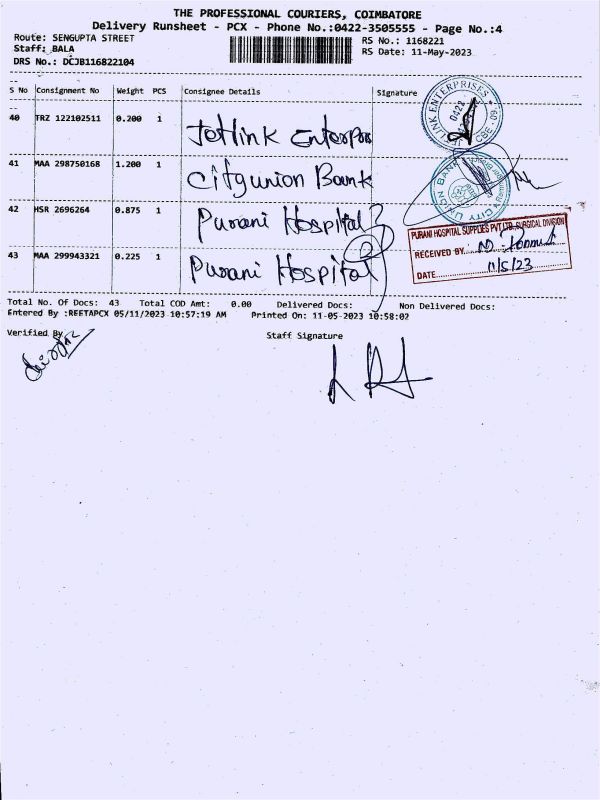 THE PROFESSIONAL COURIERS, COIMBATORE
Delivery Runsheet - PCX - Phone No.:0422-3505555 - Page No.:4
Route: SENGUPTA STREET RS No.: 1168221
Staff: BALA RS Date: 11-May-2023
DRS No.: DCJB116822104
S No Consignment No Weight PCS Consignee Details Signature
40 TRZ 122102511 0.200 1 Jetlink
LINK ENTERPRISES
0422
CBE
41 MAA 298750168 1.200 1 Cityunion Bank
CITY UNION BANK
42 HSR 2696264 0.875 1 Purani Hospital
PURANI HOSPITAL SUPPLIES PVT LTD. SURGICAL DIVISION
RECEIVED BY
43 MAA 299943321 0.225 1 Purani Hospital
DATE 11/5/23
Total No. Of Docs: 43 Total COD Amt: 0.00 Delivered Docs: Non Delivered Docs:
Entered By :REETAPCX 05/11/2023 10:57:19 AM Printed On: 11-05-2023 10:58:02
Verified By Staff Signature